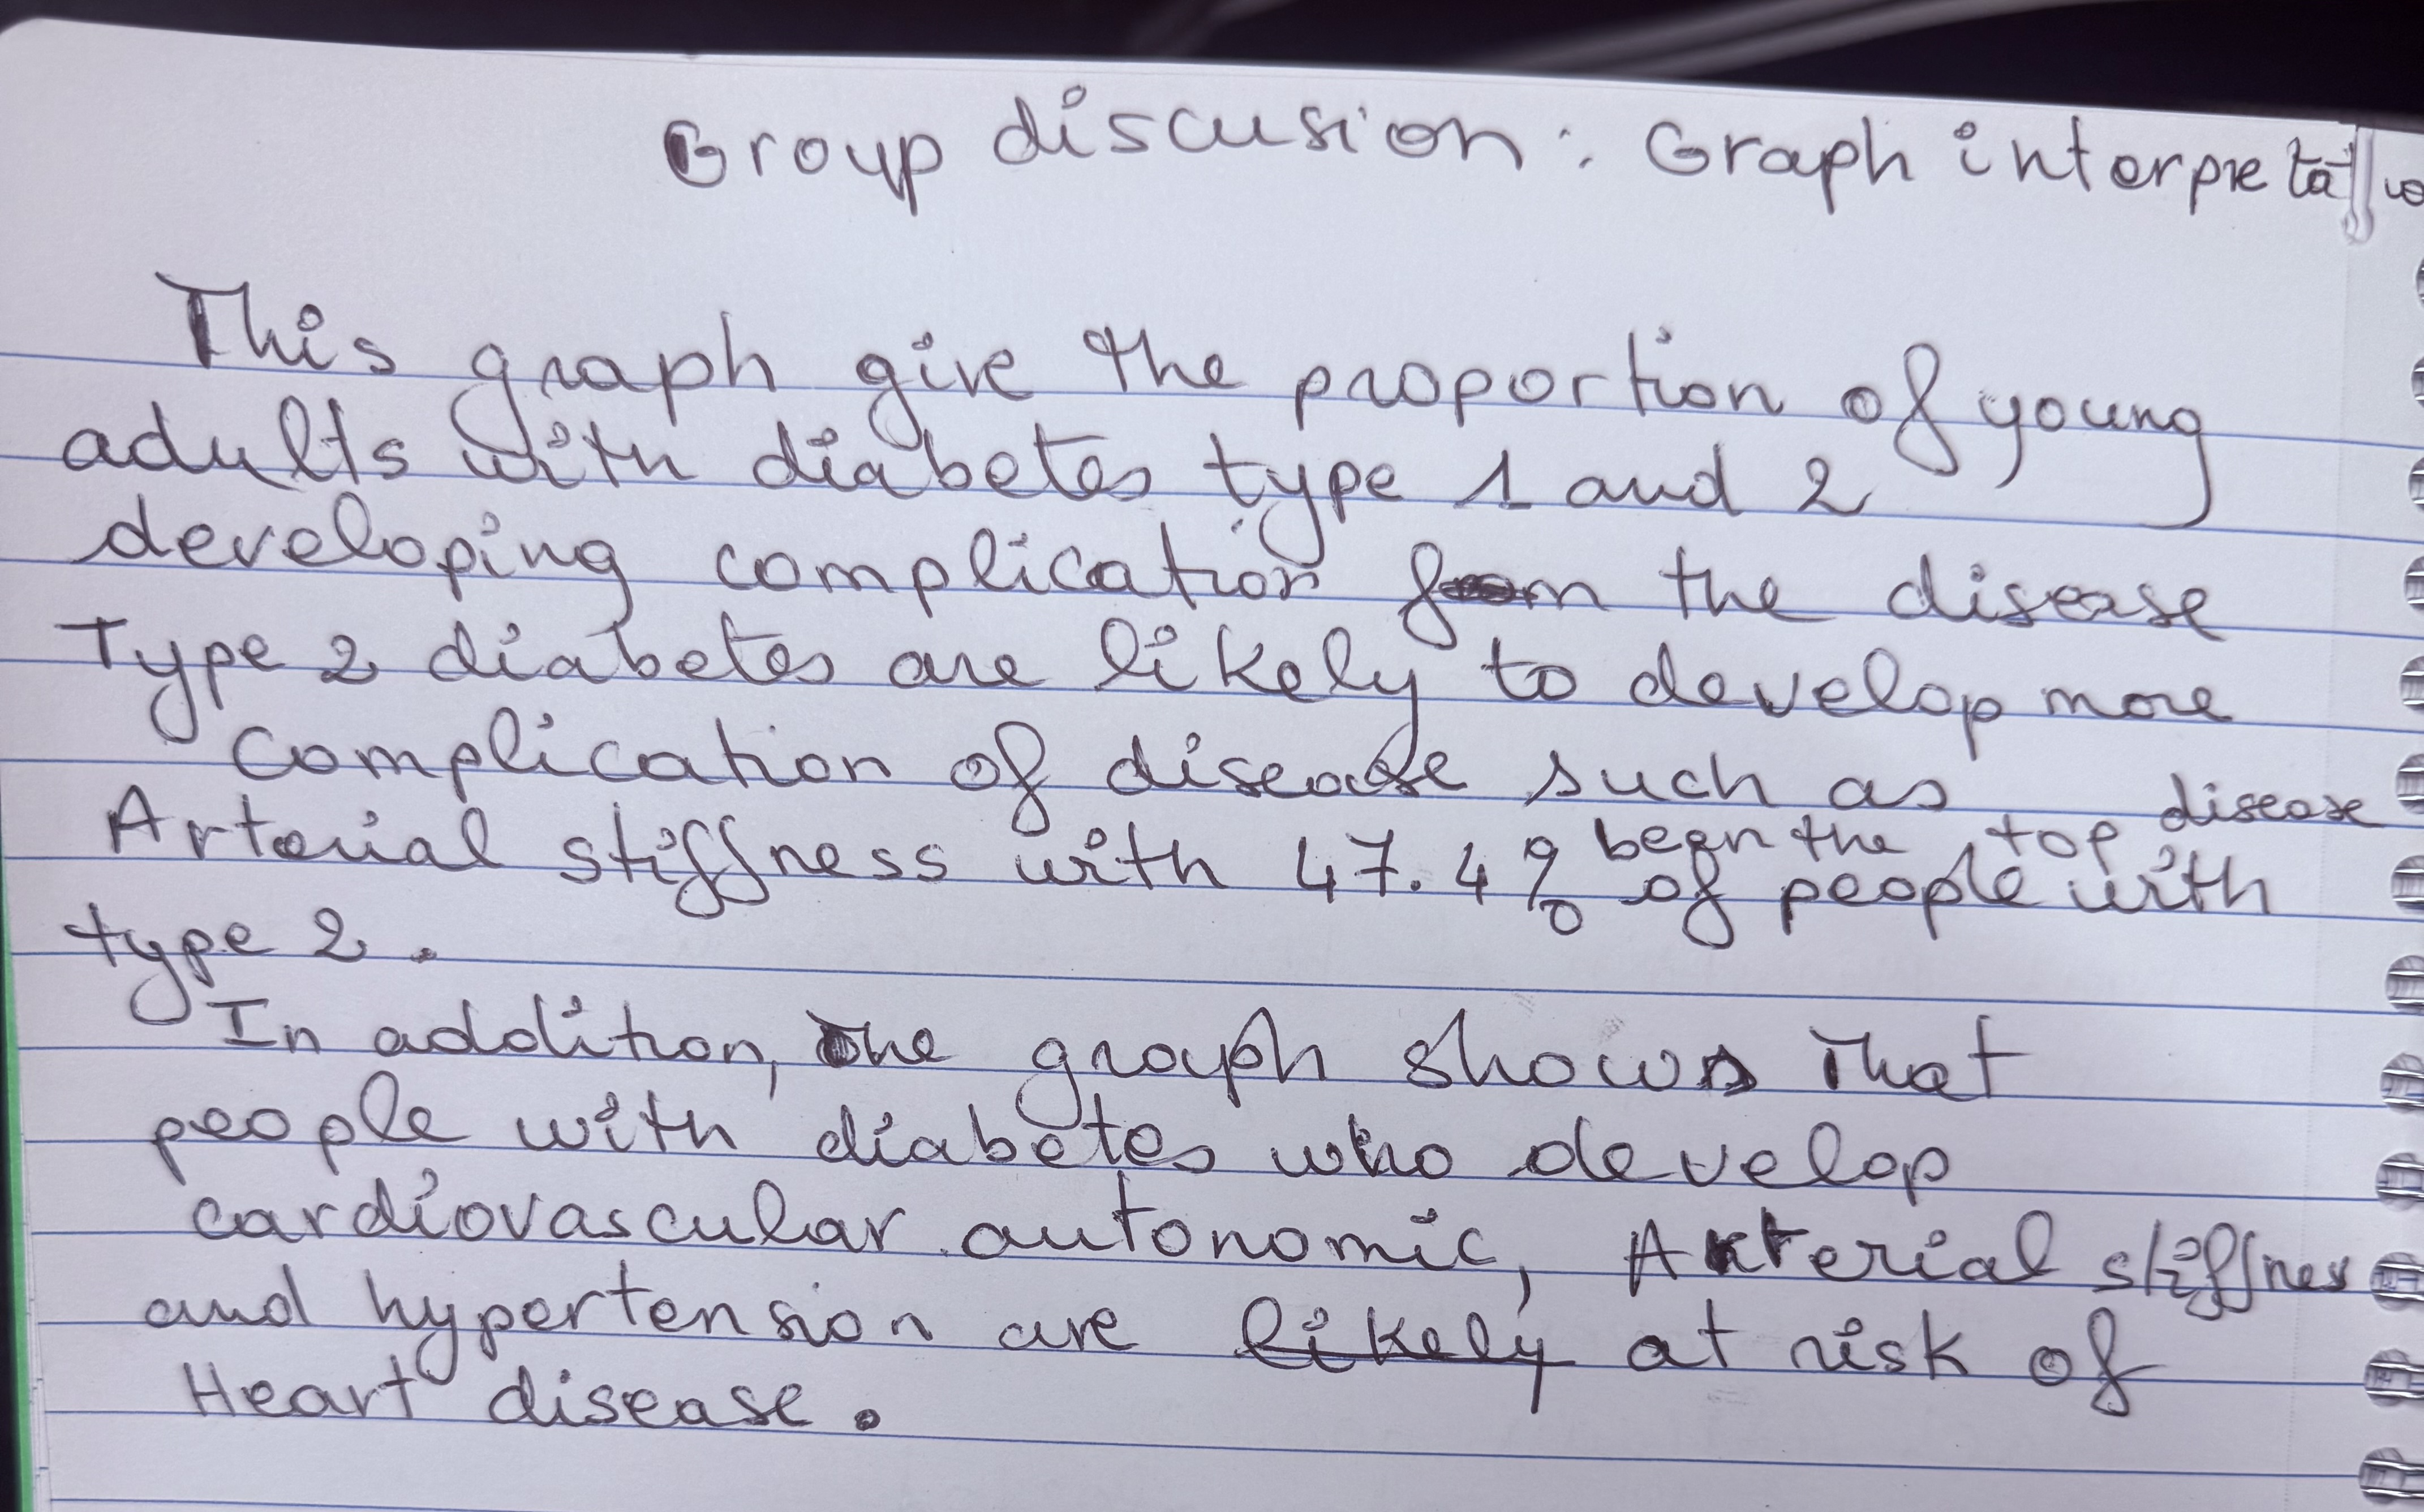 Group discusion : Graph interpretatio
This graph give the proportion of young
adults with diabetes type 1 and 2
developing complication from the disease
Type 2 diabetes are likely to develop more
Complication of disease such as
Arterial stiffness with 47.4% begn the top disease
of people with
type 2.
In addition, the graph shows that
people with diabetes who develop
cardiovascular autonomic, Arterial stiffness
and hypertension are likely at risk of
Heart disease.